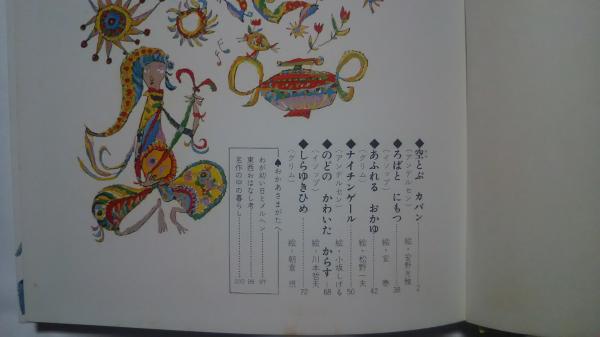 ◆空とぶ カバン
（アンデルセン） 絵・安野光雅 2
◆ろばと にもつ
（イソップ） 絵・安 泰 38
◆あふれる おかゆ
（グリム） 絵・松野一夫 42
◆ナイチンゲール
（アンデルセン） 絵・小坂しげる 50
◆のどの かわいた からす
（イソップ） 絵・川本哲夫 68
◆しらゆきひめ
（グリム） 絵・朝倉 摂 72
♠おかあさまがたへ
わが幼い日とメルヘン 97
東西おはなし考 98
名作の中の暮らし 100